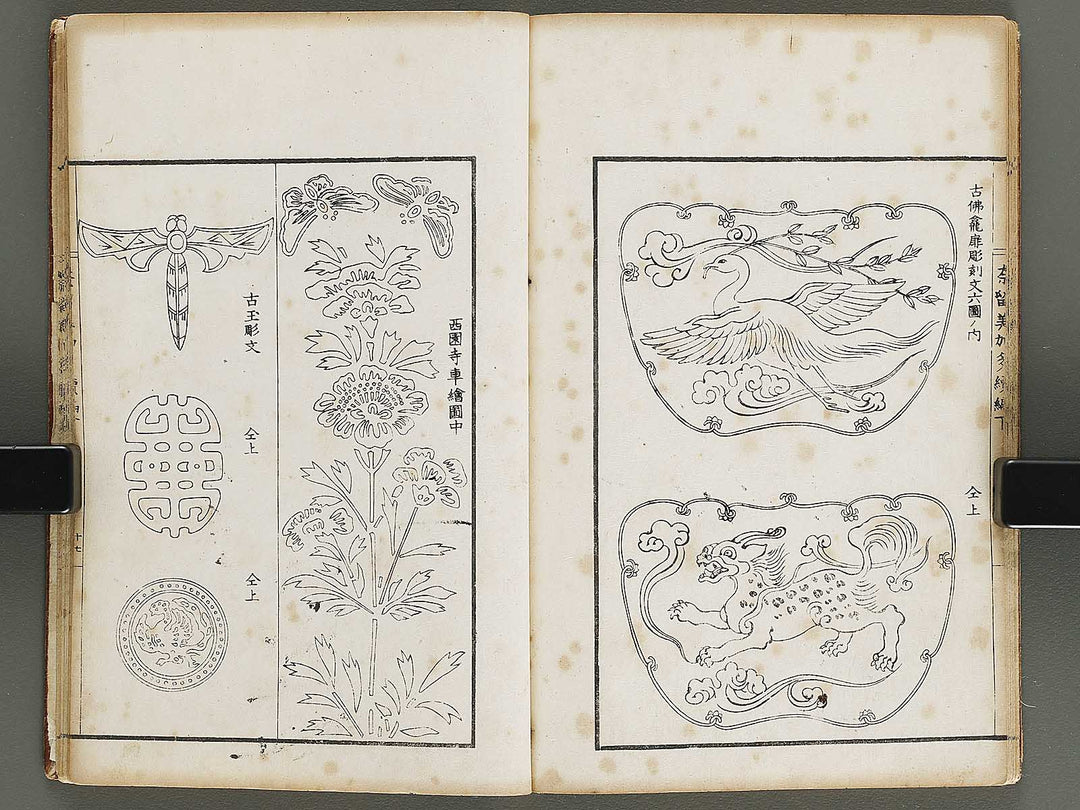 古佛龕扉彫刻文六圖ノ内
仝上
奈留美加多
西園寺車繪圖中
古玉彫文
仝上
仝上
十七